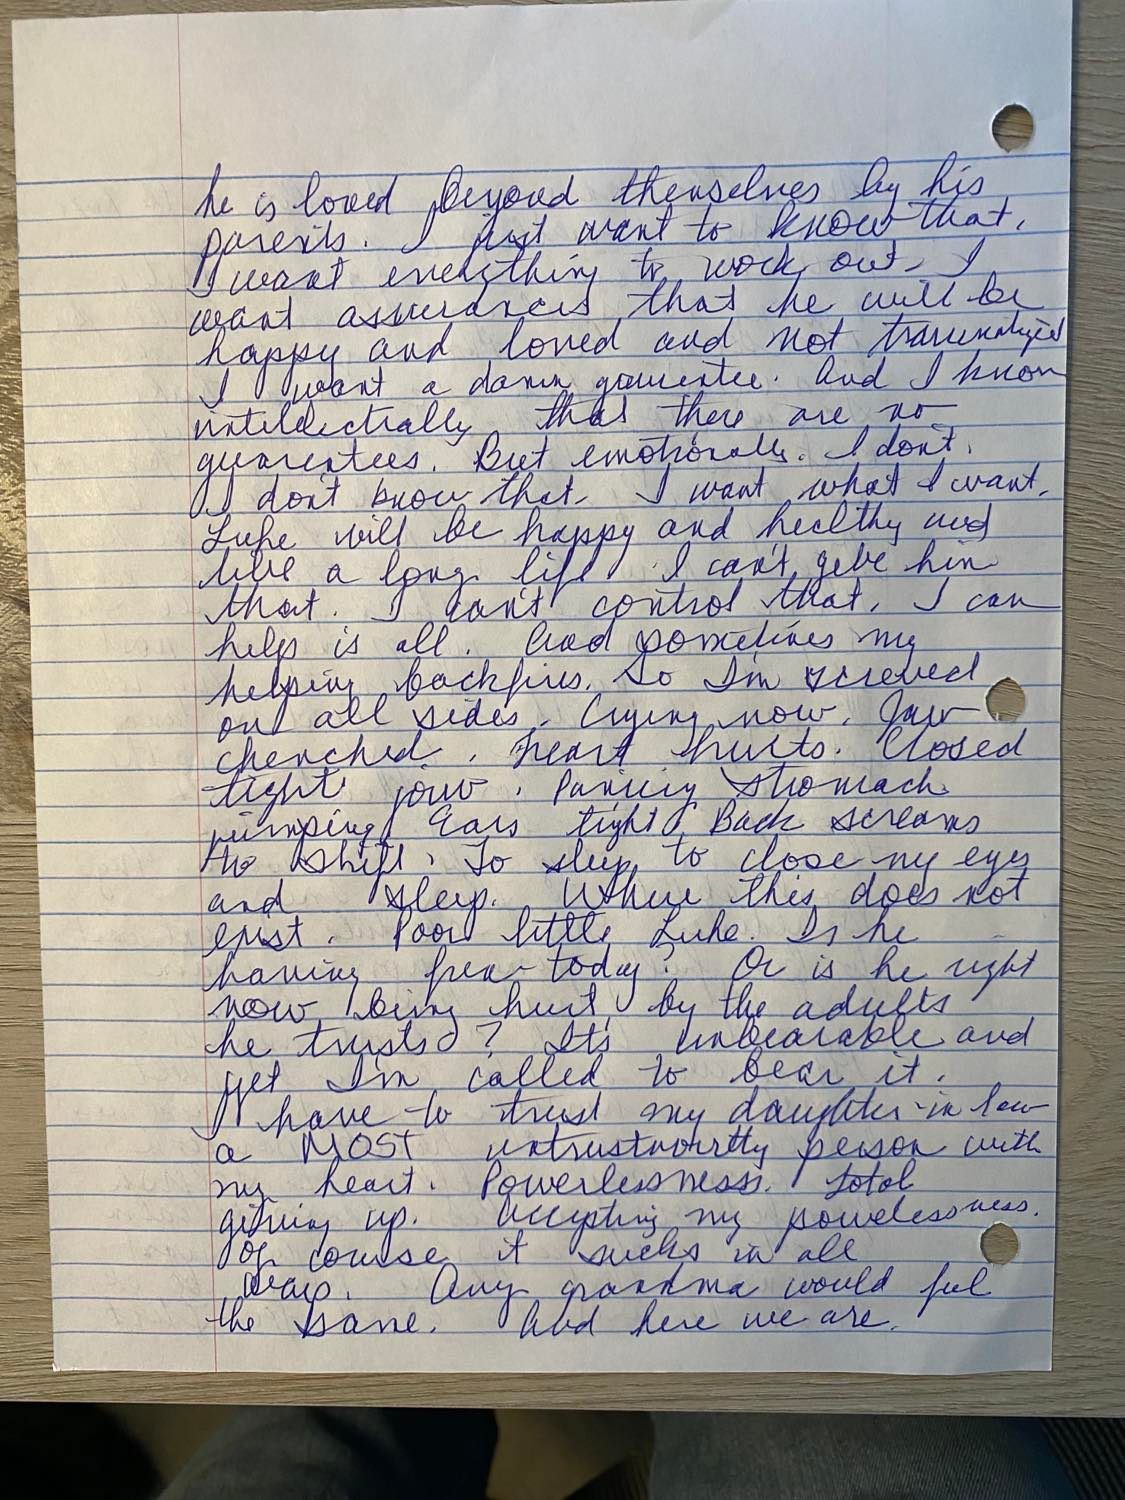 he is loved beyond themselves by his
parents. I just want to know that.
I want everything to work out. I
want assurances that he will be
happy and loved and not traumatized
I want a damn guarentee. And I know
intellectually that there are no
guarentees. But emotionally. I don't.
I don't know that. I want what I want.
Luke will be happy and healthy and
live a long life. I can't give him
that. I can't control that. I can
help is all. And sometimes my
helping backfires. So I'm screwed
on all sides. Crying now. Jaw
chenched. Heart hurts. Closed
tight jaw. Panicy stomach
jumping Ears tight Back screams
to shift. To sleep to close my eyes
and sleep. Where this does not
exist. Poor little Luke. Is he
having fun today? Or is he right
now being hurt by the adults
he trusts? It's unbearable and
yet I'm called to bear it.
I have to trust my daughter-in law
a MOST untrustworthy person with
my heart. Powerlessness. Total
giving up. Accepting my powelessness.
Of course it sucks in all
ways. Any grandma would feel
the same. And here we are.